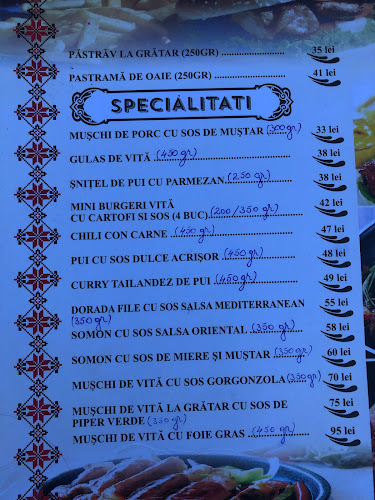 PĂSTRĂV LA GRĂTAR (250GR) ........................ 35 lei
PASTRAMĂ DE OAIE (250GR) ........................ 41 lei
SPECIALITATI
MUȘCHI DE PORC CU SOS DE MUȘTAR (300gr) 33 lei
GULAS DE VITĂ (450 gr) 38 lei
ȘNIȚEL DE PUI CU PARMEZAN (250 gr) 38 lei
MINI BURGERI VITĂ 42 lei
CU CARTOFI SI SOS (4 BUC) (200/350 gr)
CHILI CON CARNE (450 gr) 47 lei
PUI CU SOS DULCE ACRIȘOR (450 gr) 48 lei
CURRY TAILANDEZ DE PUI (450 gr) 49 lei
DORADA FILE CU SOS SALSA MEDITERRANEAN 55 lei
(350 gr)
SOMON CU SOS SALSA ORIENTAL (350 gr) 58 lei
SOMON CU SOS DE MIERE ȘI MUȘTAR (350 gr) 60 lei
MUȘCHI DE VITĂ CU SOS GORGONZOLA (350 gr) 70 lei
MUȘCHI DE VITĂ LA GRĂTAR CU SOS DE 75 lei
PIPER VERDE (350 gr)
MUȘCHI DE VITĂ CU FOIE GRAS (450 gr) 95 lei